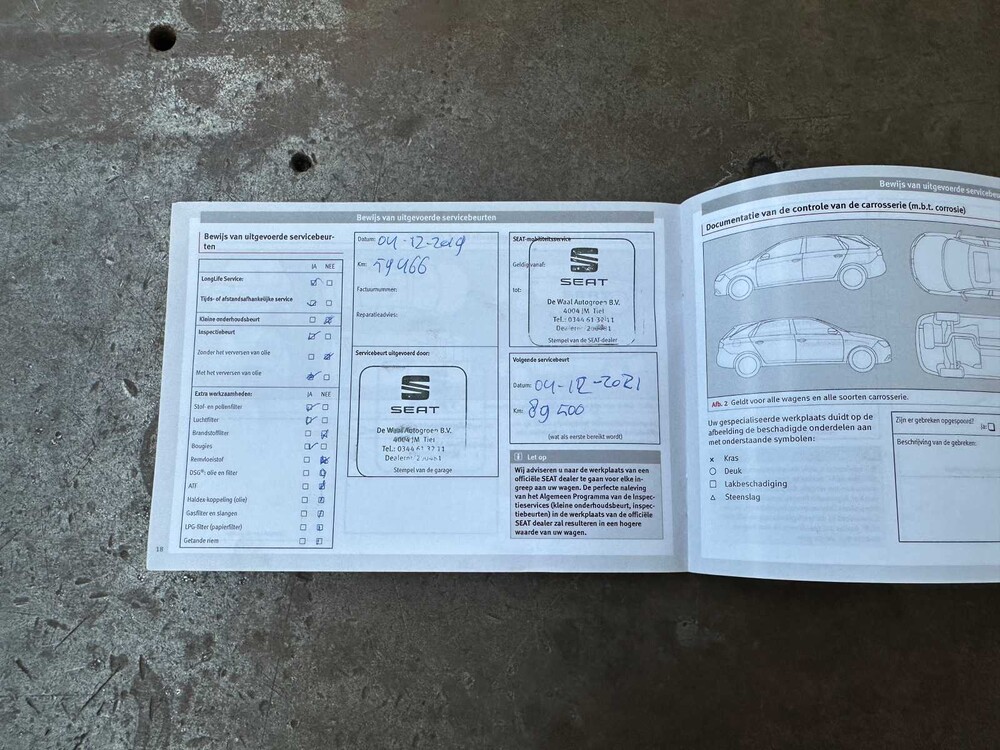 Bewijs van uitgevoerde servicebeurten
Bewijs van uitgevoerde servicebeur-
ten
JA NEE
LongLife Service:
Tijds- of afstandsafhankelijke service
Kleine onderhoudsbeurt
Inspectiebeurt
Zonder het verversen van olie
Met het verversen van olie
Extra werkzaamheden: JA NEE
Stof- en pollenfilter
Luchtfilter
Brandstoffilter
Bougies
Remvloeistof
DSG®: olie en filter
ATF
Haldex-koppeling (olie)
Gasfilter en slangen
LPG-filter (papierfilter)
Getande riem
18
Datum: 04-12-2019
Km: 59466
Factuurnummer:
Reparatieadvies:
Servicebeurt uitgevoerd door:
SEAT
De Waal Autogroep B.V.
4004 JM Tiel
Tel.: 0344 61 37 11
Stempel van de garage
SEAT-mobiliteitsservice
Geldig vanaf:
tot:
SEAT
De Waal Autogroep B.V.
4004 JM Tiel
Tel.: 0344 61 37 11
Stempel van de SEAT-dealer
Volgende servicebeurt
Datum: 04-12-2021
Km: 89500
(wat als eerste bereikt wordt)
i Let op
Wij adviseren u naar de werkplaats van een
officiële SEAT dealer te gaan voor elke in-
greep aan uw wagen. De perfecte naleving
van het Algemeen Programma van de Inspec-
tieservices (kleine onderhoudsbeurt, inspec-
tiebeurten) in de werkplaats van de officiële
SEAT dealer zal resulteren in een hogere
waarde van uw wagen.
Bewijs van uitgevoerde servicebeu
Documentatie van de controle van de carrosserie (m.b.t. corrosie)
Afb. 2 Geldt voor alle wagens en alle soorten carrosserie.
Uw gespecialiseerde werkplaats duidt op de
afbeelding de beschadigde onderdelen aan
met onderstaande symbolen:
x Kras
○ Deuk
□ Lakbeschadiging
△ Steenslag
Zijn er gebreken opgespoord?
Ja: ❑
Beschrijving van de gebreken: